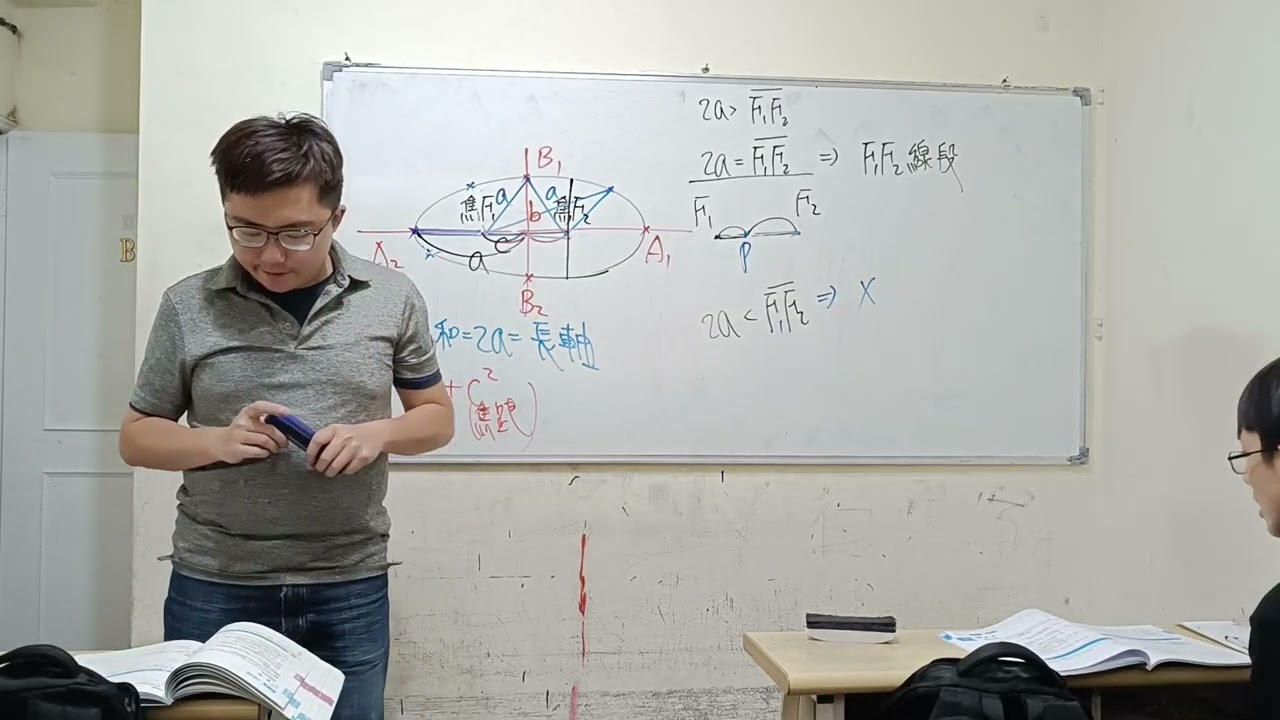 B
B₁
焦F₁ a a 焦F₂
b
A₂ c A₁
a
B₂
和=2a=長軸
+c²
(焦距)
2a > F̅₁F̅₂
2a = F̅₁F̅₂ ⇒ F₁F₂線段
F₁ F₂
P
2a < F̅₁F̅₂ ⇒ X